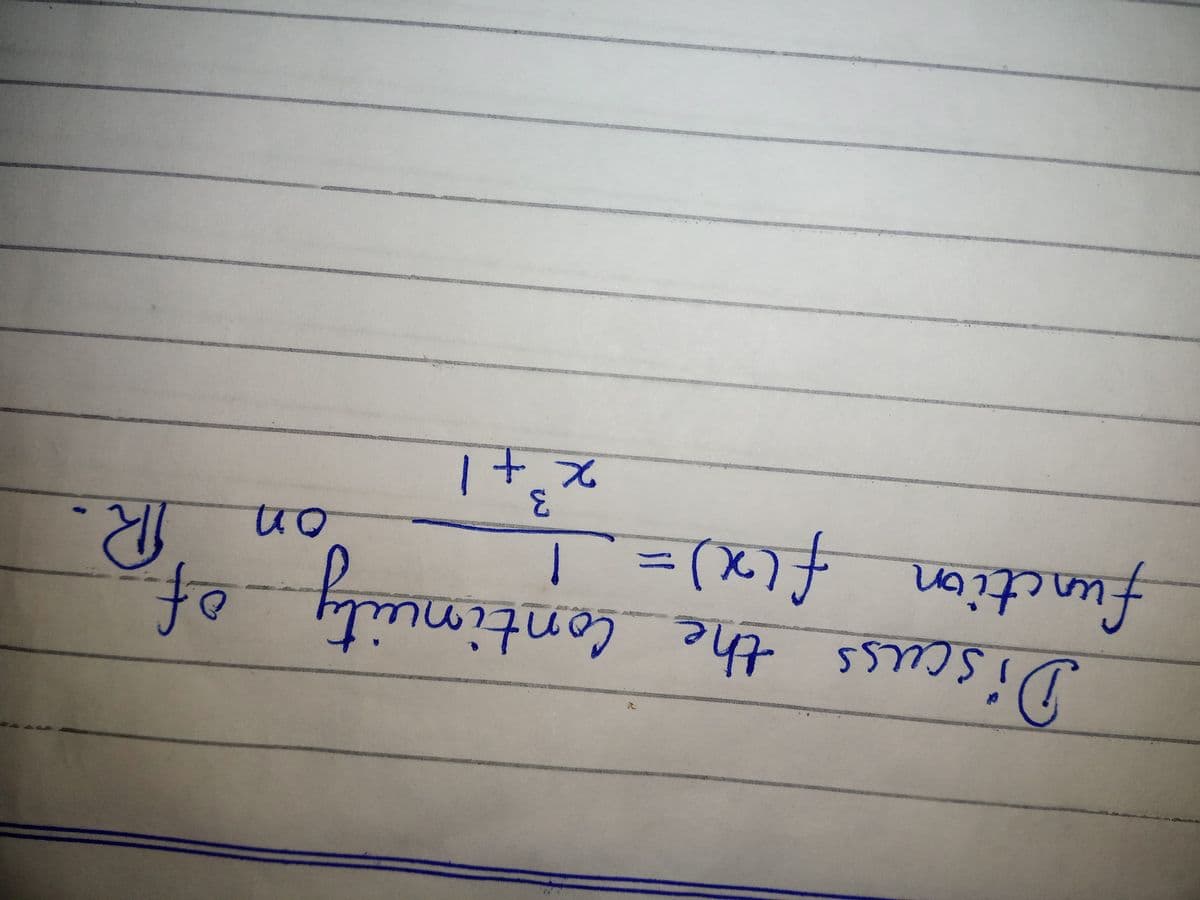 Discuss the continuity of
function f(x) = 1 / (x³ + 1) on ℝ.